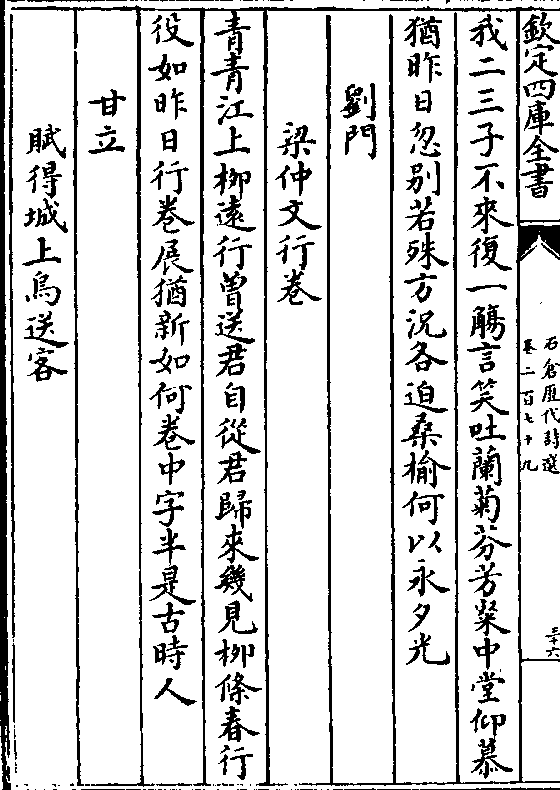 欽定四庫全書
石倉歷代詩選
卷二百七十九
三十六
我二三子不來復一觴言笑吐蘭菊芬芳粲中堂仰慕
猶昨日忽別若殊方況各迫桑榆何以永夕光
劉門
梁仲文行卷
青青江上柳遠行曾送君自從君歸來幾見柳條春行
役如昨日行卷展猶新如何卷中字半是古時人
甘立
賦得城上烏送客